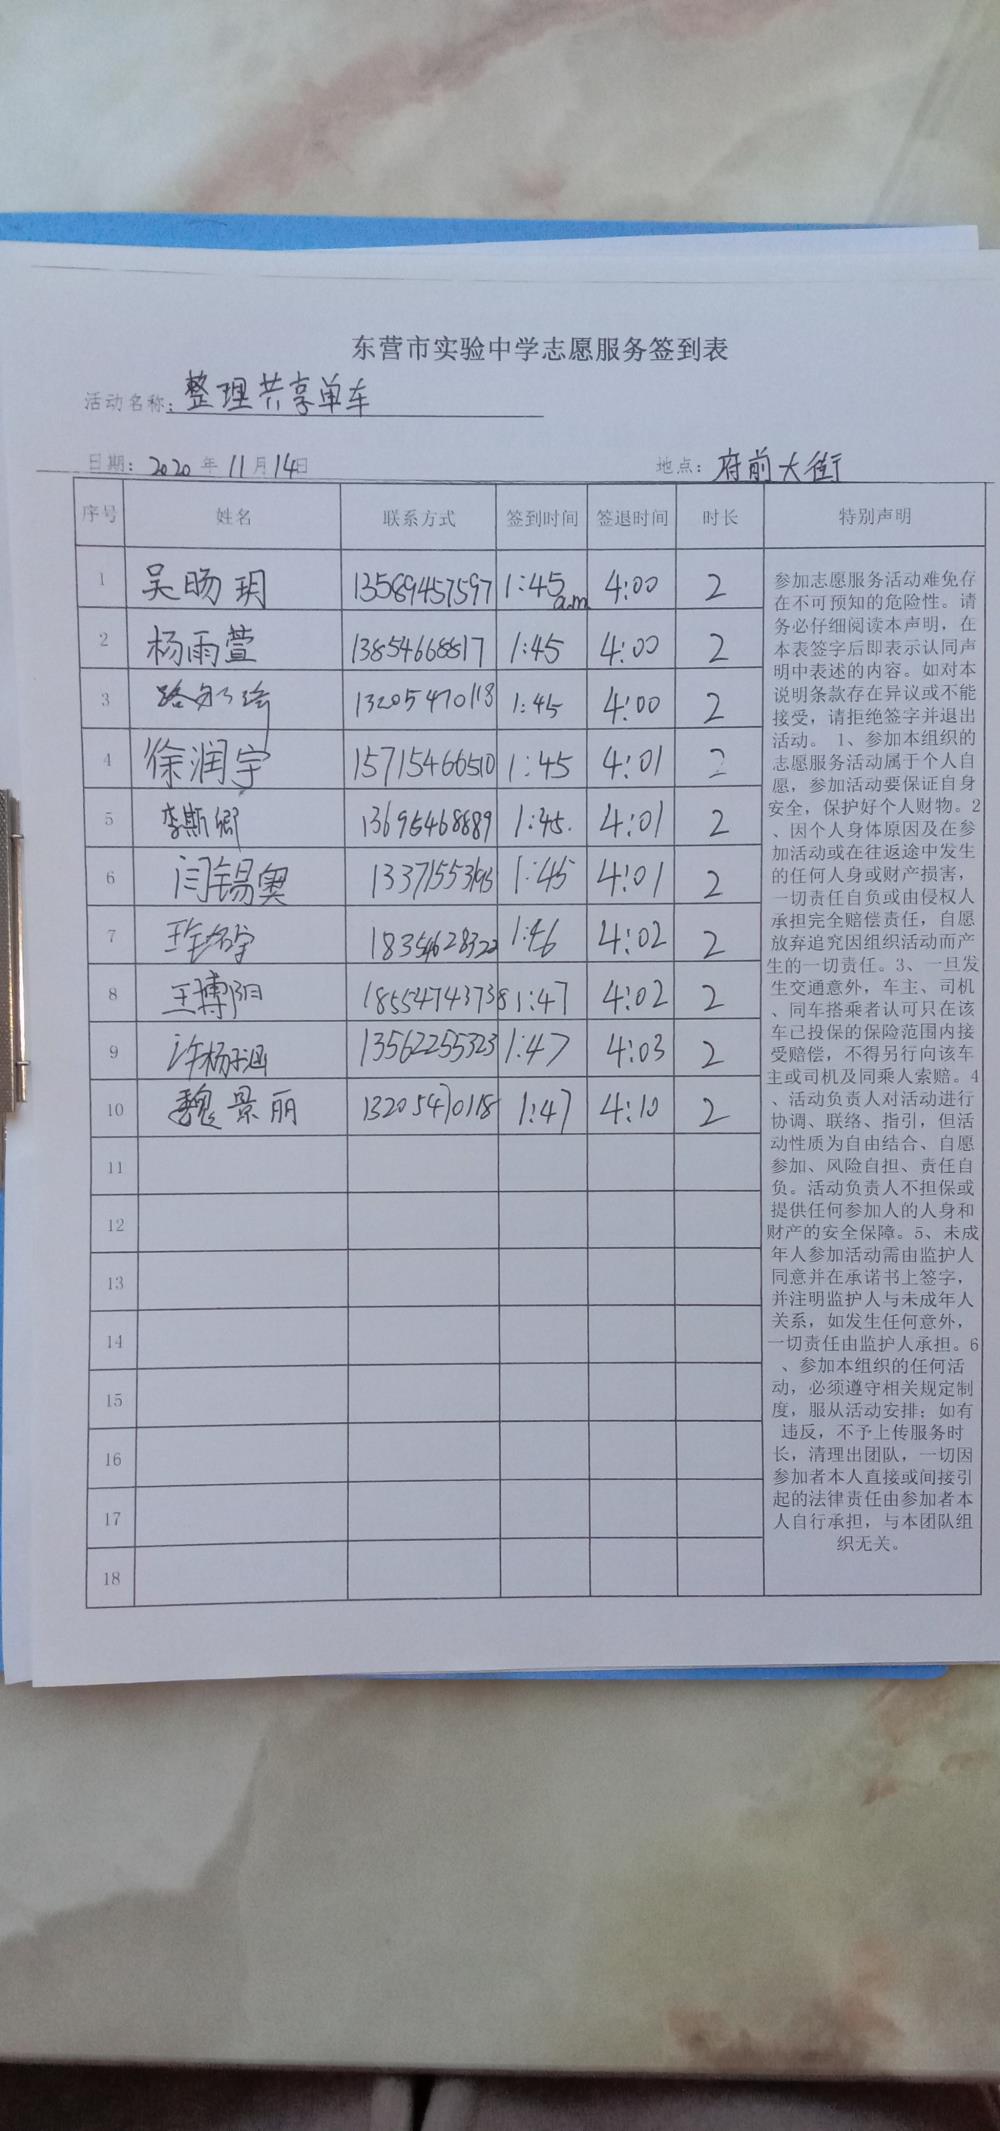 东营市实验中学志愿服务签到表
活动名称：整理共享单车
日期：2020 年 11 月 14 日 地点：府前大街
序号 姓名 联系方式 签到时间 签退时间 时长 特别声明
1 吴旸玥 13589457597 1:45 a.m 4:00 2
2 杨雨萱 13854668817 1:45 4:00 2
3 13205470118 1:45 4:00 2
4 徐润宇 15715466510 1:45 4:01 2
5 李斯卿 13695468889 1:45. 4:01 2
6 闫锡奥 1:45 4:01 2
7 18354628322 1:46 4:02 2
8 王博阳 18554743738 1:47 4:02 2
9 许杨涵 13562255323 1:47 4:03 2
10 魏景丽 13205470118 1:47 4:10 2
11
12
13
14
15
16
17
18
参加志愿服务活动难免存
在不可预知的危险性。请
务必仔细阅读本声明，在
本表签字后即表示认同声
明中表述的内容。如对本
说明条款存在异议或不能
接受，请拒绝签字并退出
活动。 1、参加本组织的
志愿服务活动属于个人自
愿，参加活动要保证自身
安全，保护好个人财物。2
、因个人身体原因及在参
加活动或在往返途中发生
的任何人身或财产损害，
一切责任自负或由侵权人
承担完全赔偿责任，自愿
放弃追究因组织活动而产
生的一切责任。3、一旦发
生交通意外，车主、司机
、同车搭乘者认可只在该
车已投保的保险范围内接
受赔偿，不得另行向该车
主或司机及同乘人索赔。4
、活动负责人对活动进行
协调、联络、指引，但活
动性质为自由结合、自愿
参加、风险自担、责任自
负。活动负责人不担保或
提供任何参加人的人身和
财产的安全保障。5、未成
年人参加活动需由监护人
同意并在承诺书上签字，
并注明监护人与未成年人
关系，如发生任何意外，
一切责任由监护人承担。6
、参加本组织的任何活
动，必须遵守相关规定制
度，服从活动安排；如有
违反，不予上传服务时
长，清理出团队，一切因
参加者本人直接或间接引
起的法律责任由参加者本
人自行承担，与本团队组
织无关。